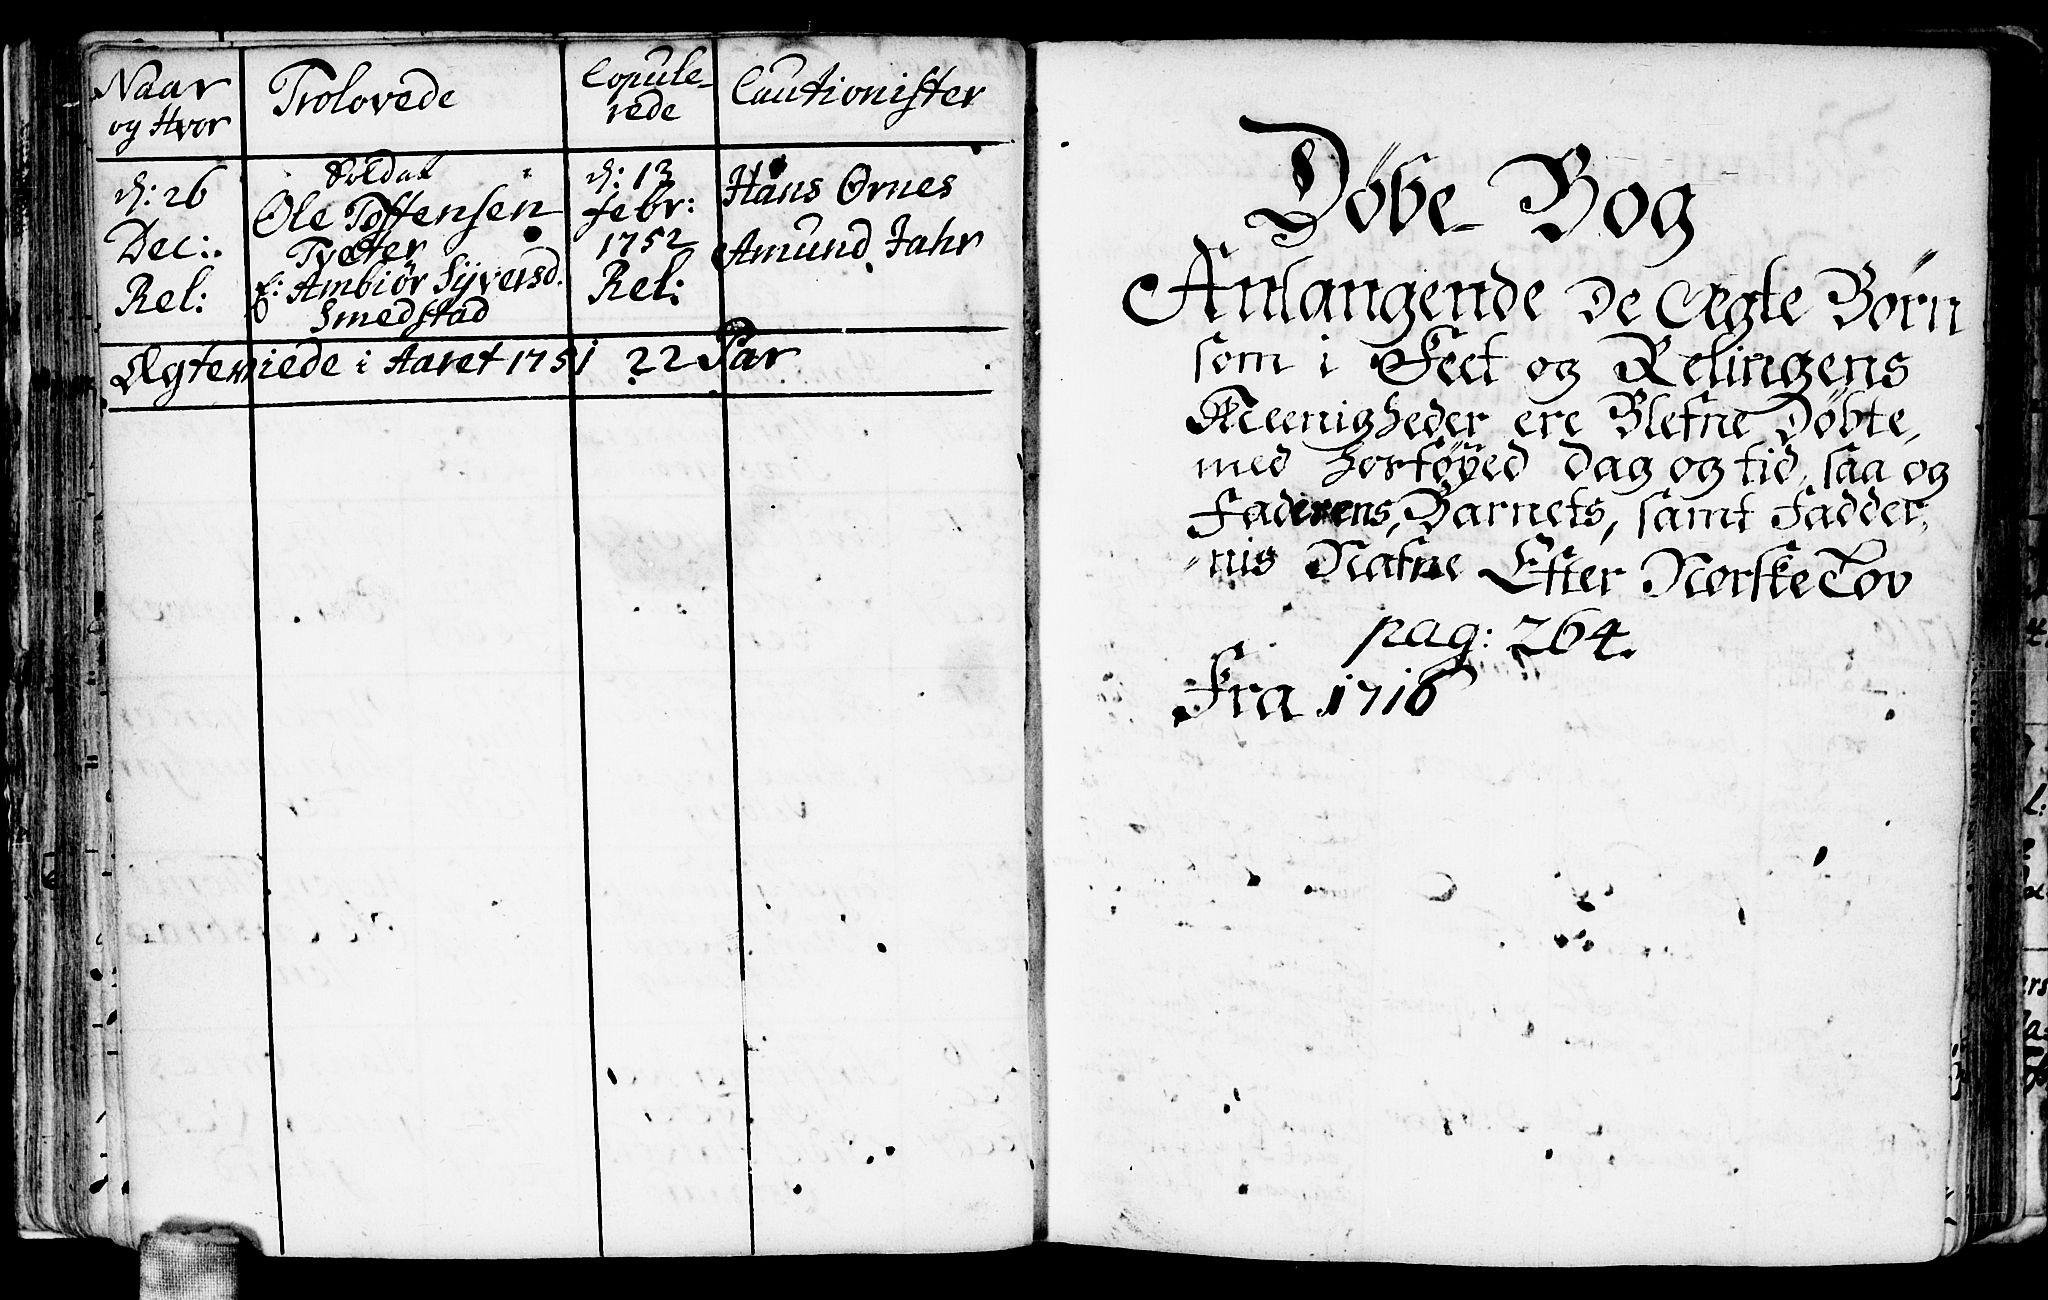 Naar
og Hvor
Trolovede
Copule-
rede
Cautionister
d: 26
Dec:
Rel:
Soldat
Ole Tostensen
Tvæter
E: Ambiør Syversd.
Smedstad
d: 13
Febr:
1752
Rel:
Hans Ørnes
Amund Jahr
Ægteviede i Aaret 1751 22 Par
Døbe-Bog
Anlangende De Ægte Børn
som i Feet og Relingens
Meenigheder ere Blefne Døbte,
med hosføyed dag og tid, saa og
Faderens, Barnets, samt Fadder-
nis Nafne Efter Norske Lov
pag: 264.
Fra 1716